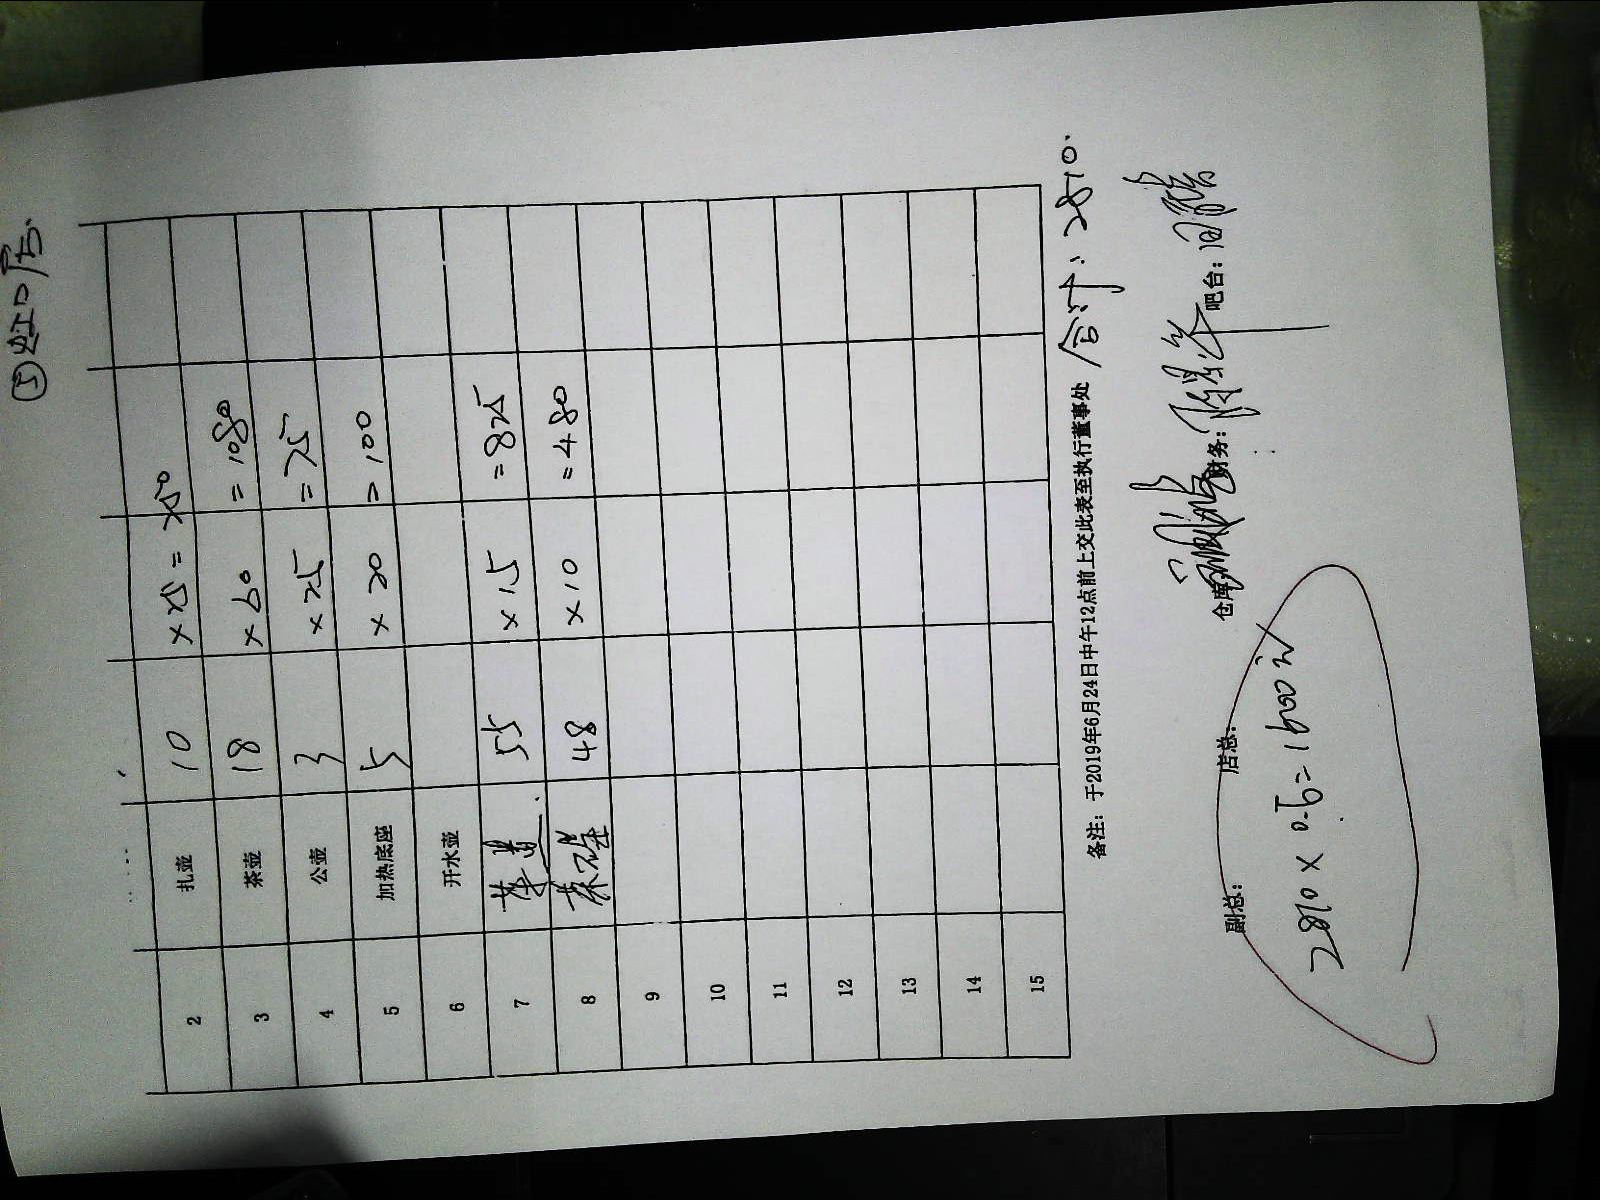 ⑤虹口店.
2 扎壶 10 ×25 = 250
3 茶壶 18 ×60 =1080
4 公壶 3 ×25 =75
5 加热底座 5 ×20 =100
6 开水壶
7 55 ×15 =825
8 48 ×10 =480
9
10
11
12
13
14
15
备注：于2019年6月24日中午12点前上交此表至执行董事处 合计：2810.
副总： 店总： 仓库： 财务： 吧台：
2810 × 0.